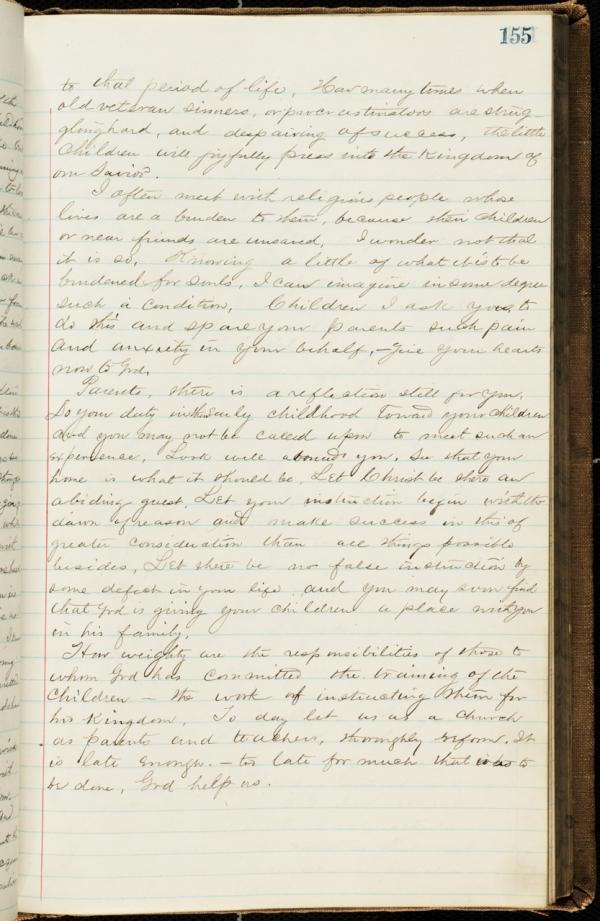 155
to that period of life, How many times when
old veteran sinners, or procrastinators are strug-
gling hard, and despairing of success, the little
children will joyfully press into the Kingdom of
our Savior.
I often meet with religious people whose
lives are a burden to them, because their children
or near friends are unsaved, I wonder not that
it is so, Knowing a little of what it is to be
burdened for souls, I can imagine in some degree
such a condition, Children I ask you to
do this and spare your parents such pain
and anxiety in your behalf,—Give your hearts
now to God,
Parents, there is a reflection still for you,
Do your duty in their early childhood toward your children
and you may not be called upon to meet such an
experience, Look well around you, See that your
home is what it should be, Let Christ be there an
abiding guest, Let your instruction begin with the
dawn of reason and make success in this of
greater consideration than all things possible
besides, Let there be no false instruction by
some defect in your life and you may soon find
that God is giving your children a place with you
in his family,
How weighty are the responsibilities of those to
whom God has committed the training of the
Children — the work of instructing them for
his Kingdom, To day let us as a church
as parents and teachers, thoroughly reform, It
is late enough,— too late for much that was to
be done, God help us.